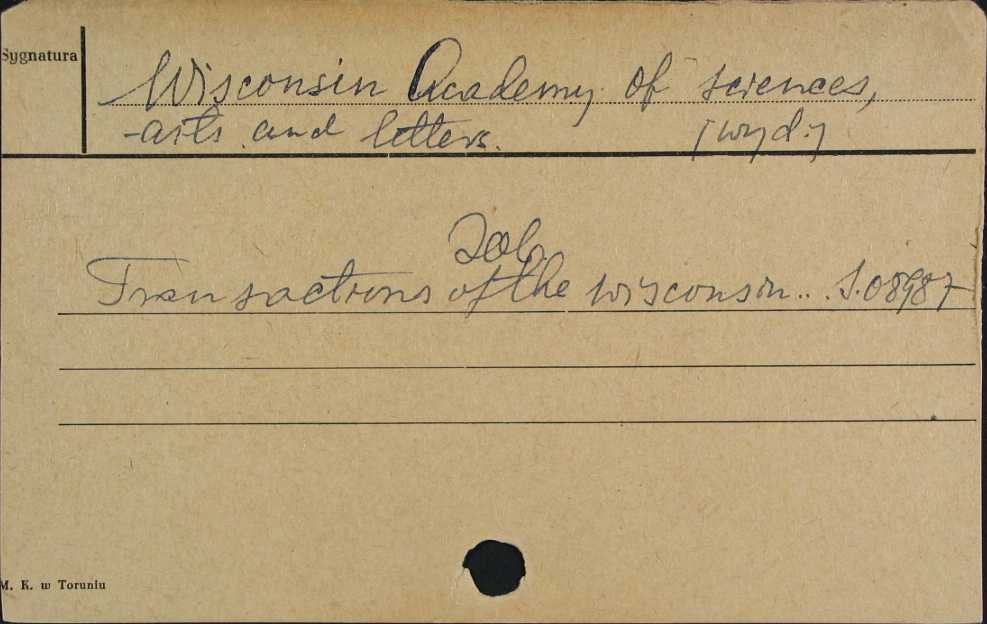 Sygnatura
Wisconsin Academy of sciences,
-arts and letters. /wyd./
Zob.
Transactions of the wisconsin... S.08987
M. K. w Toruniu